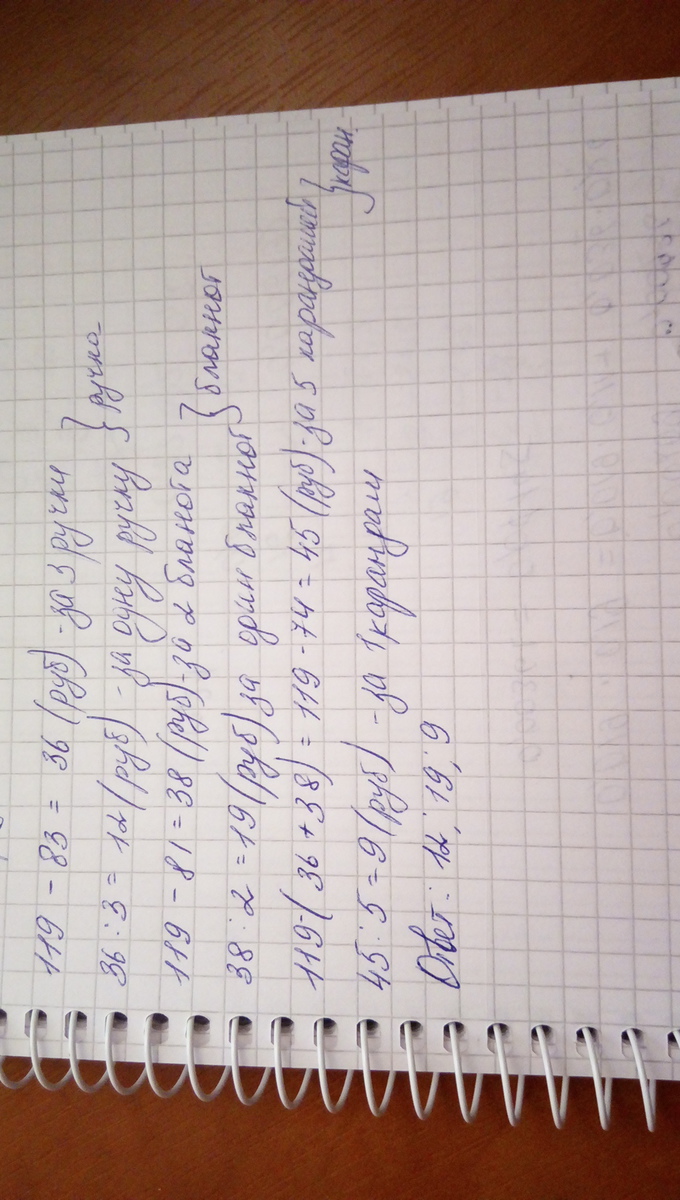 119 - 83 = 36 (руб) - за 3 ручки
36 : 3 = 12 (руб) - за одну ручку } ручка
119 - 81 = 38 (руб) - за 2 бланота
38 : 2 = 19 (руб) за один блакнот } блакнот
119 - (36 + 38) = 119 - 74 = 45 (руб) - за 5 карандашей } каран.
45 : 5 = 9 (руб) - за 1 карандаш
Ответ: 12; 19; 9